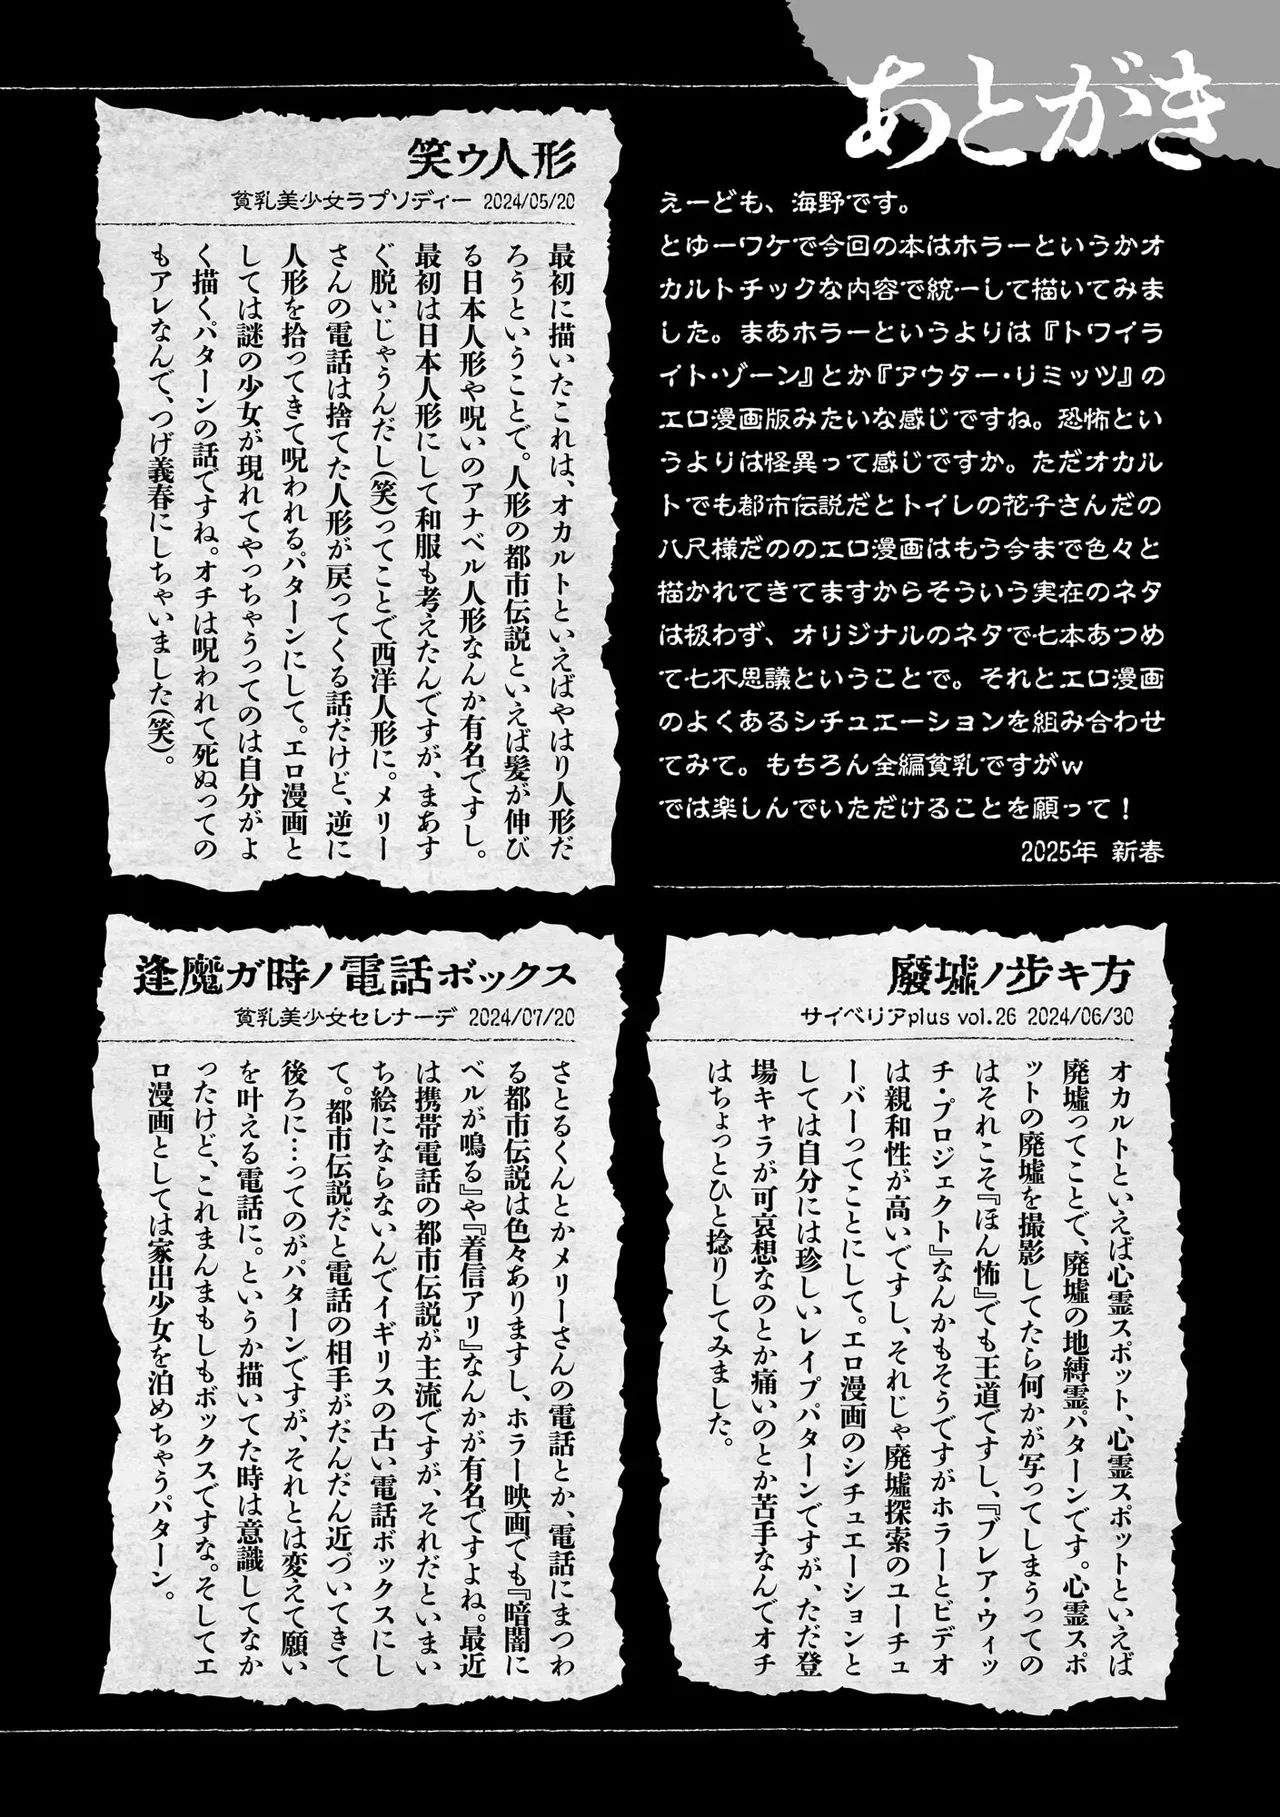 あとがき
えーども、海野です。
とゆーワケで今回の本はホラーというかオ
カルトチックな内容で統一して描いてみま
した。まあホラーというよりは『トワイラ
イト・ゾーン』とか『アウター・リミッツ』の
エロ漫画版みたいな感じですね。恐怖とい
うよりは怪異って感じですか。ただオカル
トでも都市伝説だとトイレの花子さんだの
八尺様だののエロ漫画はもう今まで色々と
描かれてきてますからそういう実在のネタ
は扱わず、オリジナルのネタで七本あつめ
て七不思議ということで。それとエロ漫画
のよくあるシチュエーションを組み合わせ
てみて。もちろん全編貧乳ですがｗ
では楽しんでいただけることを願って！
2025年 新春
笑ゥ人形
貧乳美少女ラプソディー 2024/05/20
最初に描いたこれは、オカルトといえばやはり人形だ
ろうということで。人形の都市伝説といえば髪が伸び
る日本人形や呪いのアナベル人形なんか有名ですし。
最初は日本人形にして和服も考えたんですが、まあす
ぐ脱いじゃうんだし(笑)ってことで西洋人形に。メリー
さんの電話は捨てた人形が戻ってくる話だけど、逆に
人形を拾ってきて呪われるパターンにして。エロ漫画と
しては謎の少女が現れてやっちゃうってのは自分がよ
く描くパターンの話ですね。オチは呪われて死ぬっての
もアレなんで、つげ義春にしちゃいました(笑)。
廃墟ノ歩キ方
サイベリアplus vol.26 2024/06/30
オカルトといえば心霊スポット、心霊スポットといえば
廃墟ってことで、廃墟の地縛霊パターンです。心霊スポ
ットの廃墟を撮影してたら何かが写ってしまうっての
はそれこそ『ほん怖』でも王道ですし、『ブレア・ウィッ
チ・プロジェクト』なんかもそうですがホラーとビデオ
は親和性が高いですし、それじゃ廃墟探索のユーチュ
ーバーってことにして。エロ漫画のシチュエーションと
しては自分には珍しいレイプパターンですが、ただ登
場キャラが可哀想なのとか痛いのとか苦手なんでオチ
はちょっとひと捻りしてみました。
逢魔ガ時ノ電話ボックス
貧乳美少女セレナーデ 2024/07/20
さとるくんとかメリーさんの電話とか、電話にまつわ
る都市伝説は色々ありますし、ホラー映画でも『暗闇に
ベルが鳴る』や『着信アリ』なんかが有名ですよね。最近
は携帯電話の都市伝説が主流ですが、それだといまい
ち絵にならないんでイギリスの古い電話ボックスにし
て。都市伝説だと電話の相手がだんだん近づいてきて
後ろに…ってのがパターンですが、それとは変えて願い
を叶える電話に。というか描いてた時は意識してなか
ったけど、これまんまもしもボックスですな。そしてエ
ロ漫画としては家出少女を泊めちゃうパターン。